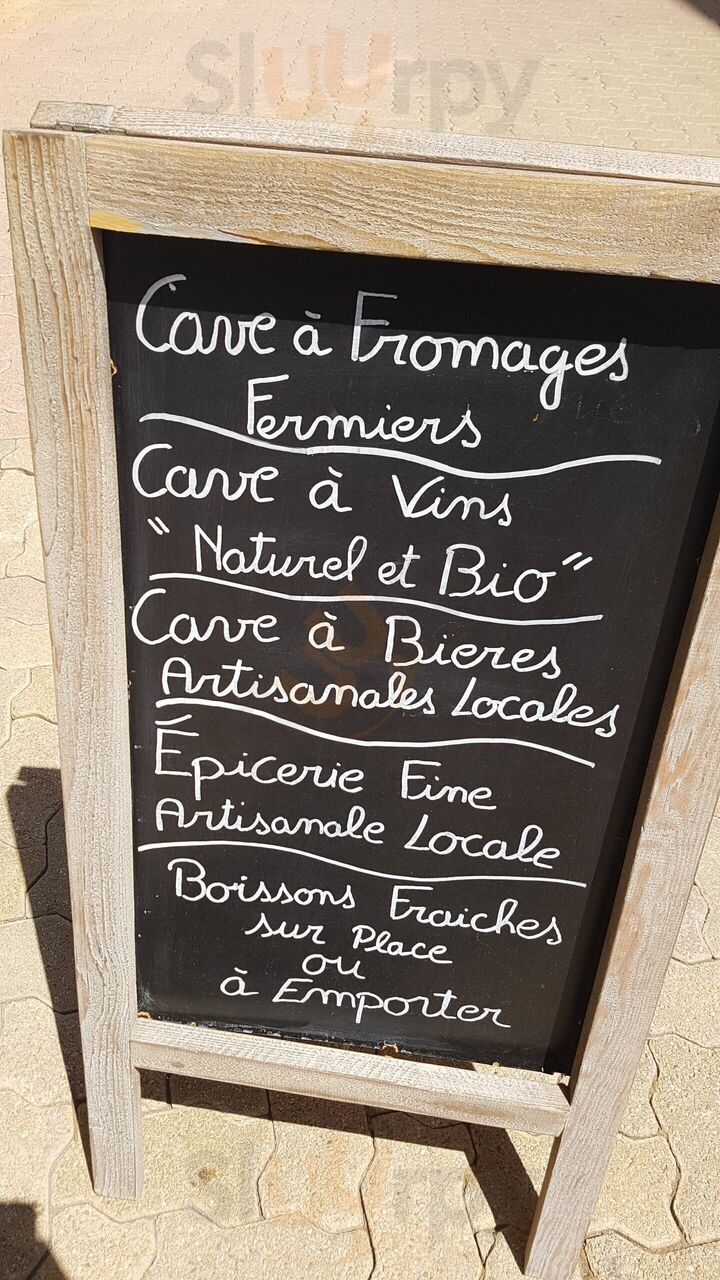 Sluurpy
Cave à Fromages
Fermiers
Cave à Vins
"Naturel et Bio"
Cave à Bieres
Artisanales Locales
Épicerie Fine
Artisanale Locale
Boissons Fraiches
sur Place
ou
à Emporter
Sluurpy